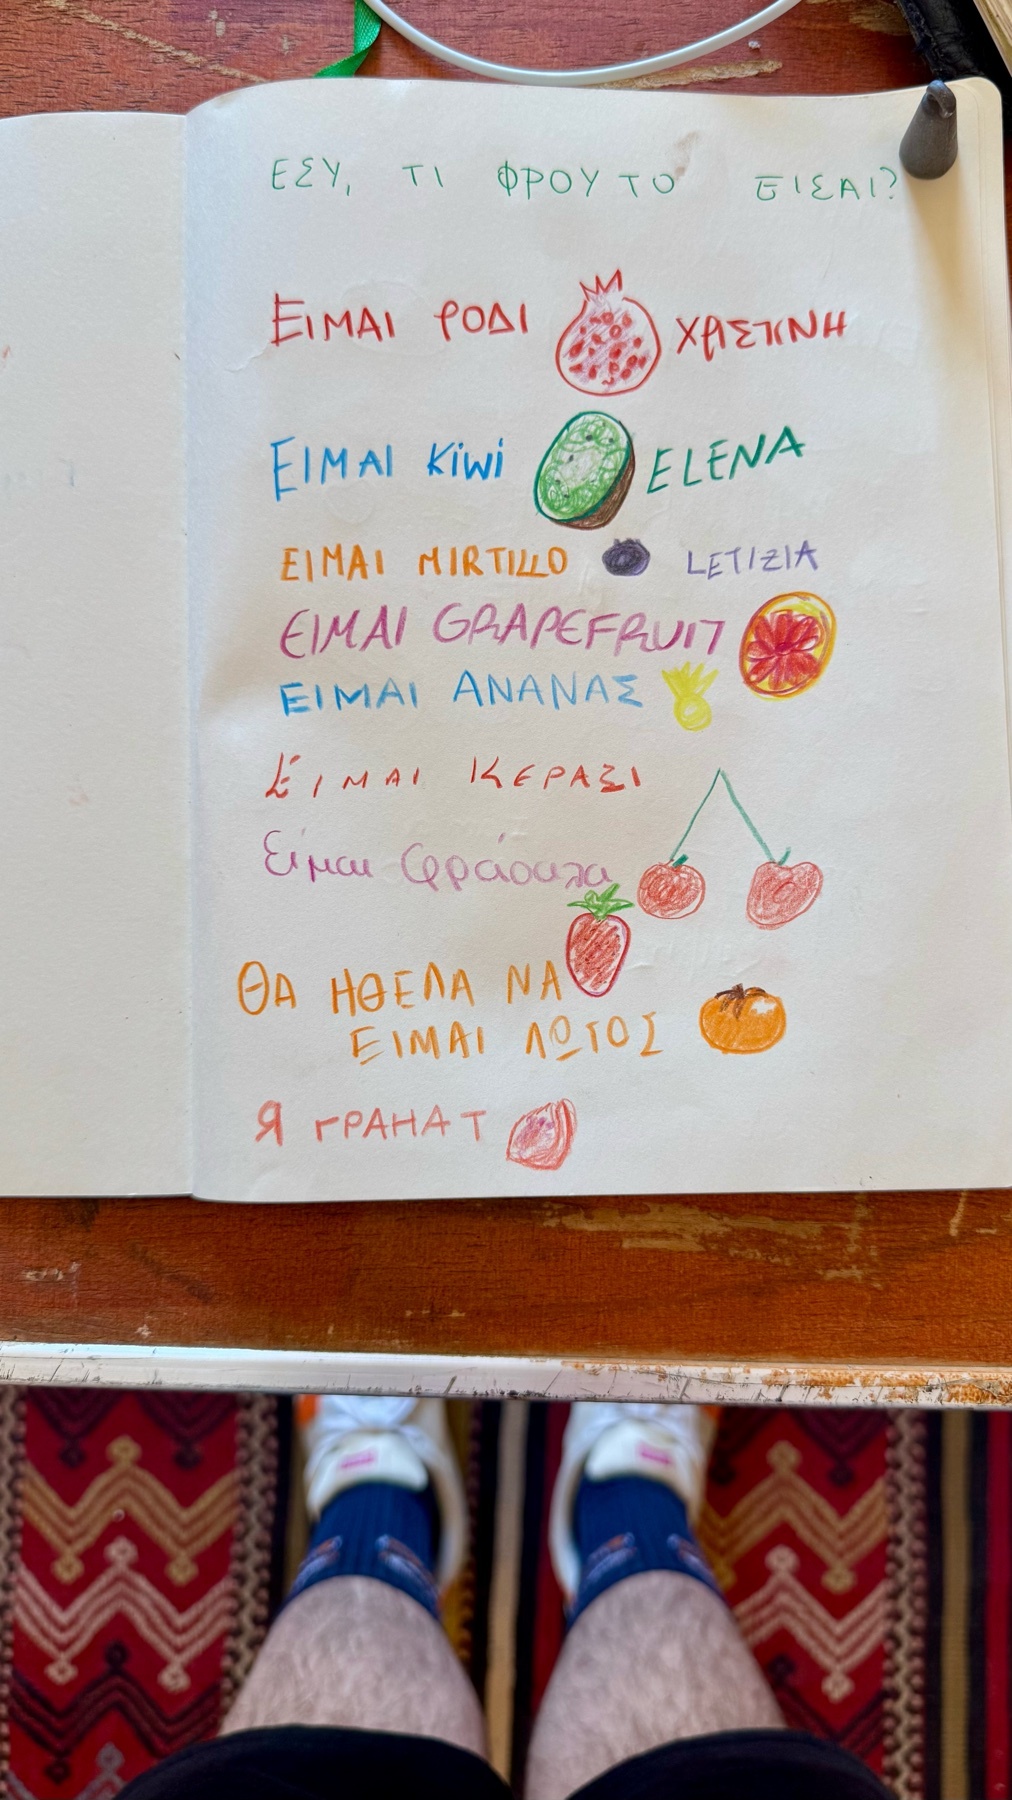 ΕΣΥ, ΤΙ ΦΡΟΥΤΟ ΕΙΣΑΙ?
ΕΙΜΑΙ ΡΟΔΙ ΧΡΙΣΤΙΝΗ
ΕΙΜΑΙ KiWi ELENA
ΕΙΜΑΙ MIRTILLO LETIZIA
ΕΙΜΑΙ GRAPEFRUIT
ΕΙΜΑΙ ΑΝΑΝΑΣ
ΕΊΜΑΙ ΚΕΡΑΣΙ
Είμαι Φράουλα
ΘΑ ΗΘΕΛΑ ΝΑ
ΕΙΜΑΙ ΛΩΤΟΣ
Я ГРАНАТ